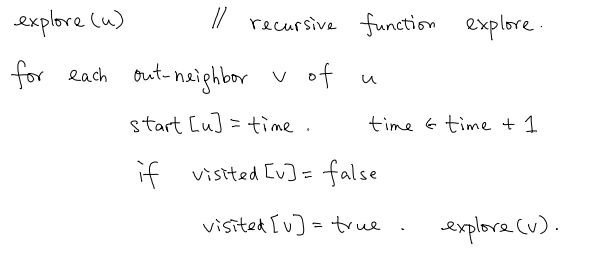 explore(u) // recursive function explore.
for each out-neighbor v of u
start[u] = time. time ← time + 1
if visited[v] = false
visited[v] = true. explore(v).